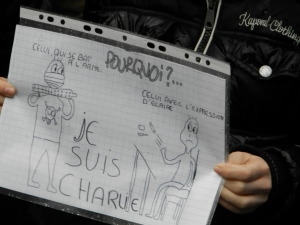 Kaporal Clothing
POURQUOI?...
CELUI QUI SE BAT
A L'ARME
CELUI AVEC L'EXPRESSION
JE
SUIS
CHARLIE